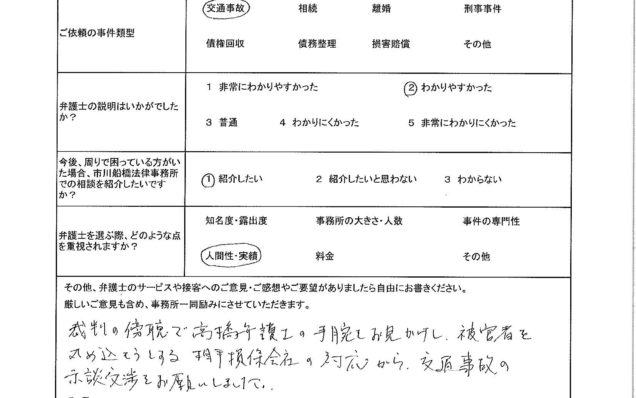 ご依頼の事件類型
交通事故 相続 離婚 刑事事件
債権回収 債務整理 損害賠償 その他
弁護士の説明はいかがでしたか？
1 非常にわかりやすかった ② わかりやすかった
3 普通 4 わかりにくかった 5 非常にわかりにくかった
今後、周りで困っている方がいた場合、市川船橋法律事務所での相談を紹介したいですか？
① 紹介したい 2 紹介したいと思わない 3 わからない
弁護士を選ぶ際、どのような点を重視されますか？
知名度・露出度 事務所の大きさ・人数 事件の専門性
人間性・実績 料金 その他
その他、弁護士のサービスや接客へのご意見・ご感想やご要望がありましたら自由にお書きください。
厳しいご意見も含め、事務所一同励みにさせていただきます。
裁判の傍聴で高橋弁護士の手腕をお見かけし、被害者を
丸め込もうとする相手損保会社の対応から、交通事故の
示談交渉をお願いしました。